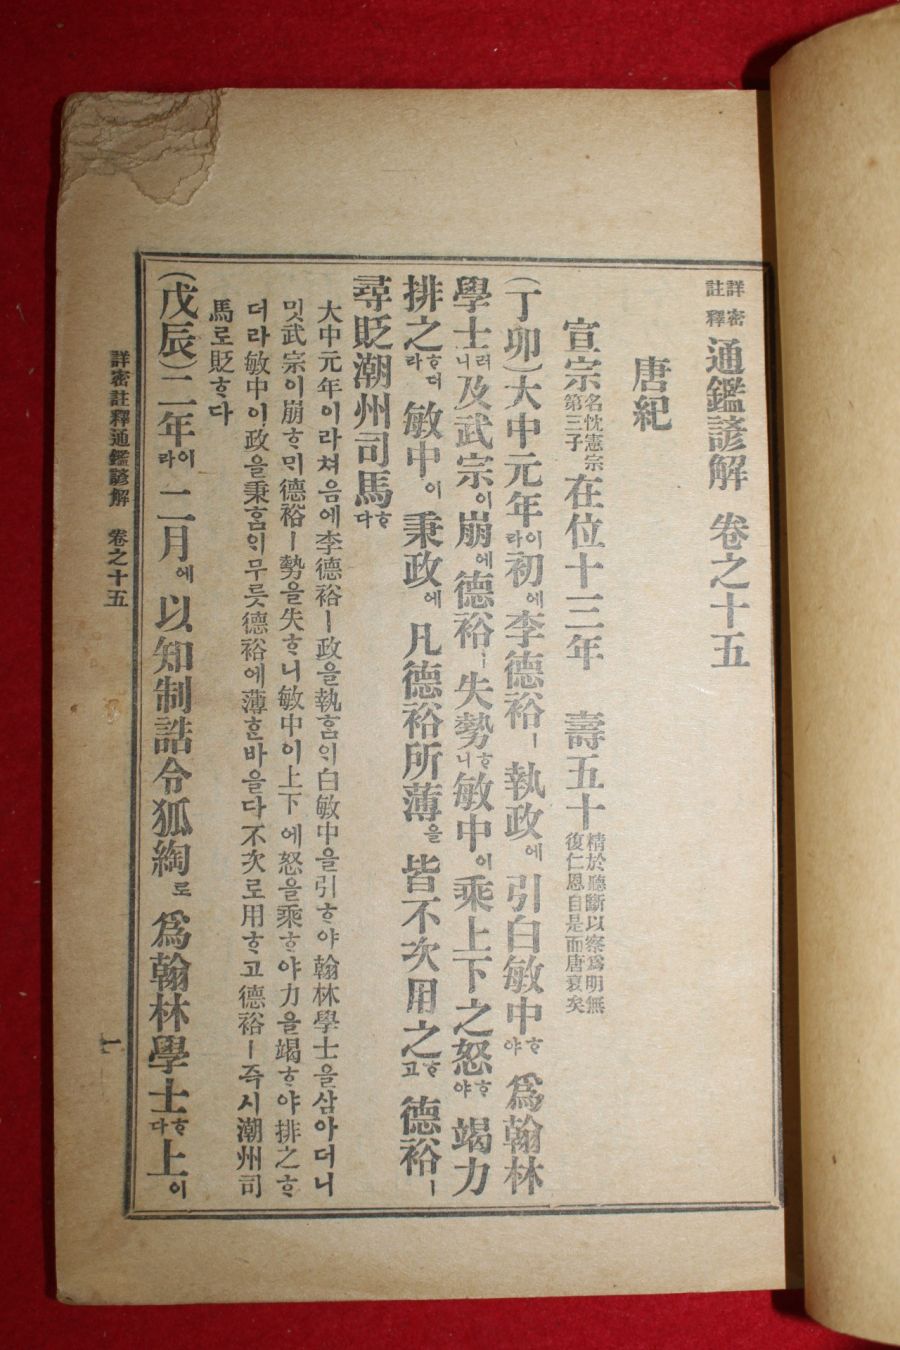 詳密註釋 通鑑諺解 卷之十五
唐紀
宣宗 名忱憲宗第三子 在位十三年 壽五十 精於聽斷以察爲明無復仁恩自是而唐衰矣
(丁卯)大中元年이라初에李德裕ㅣ執政에引白敏中ᄒᆞ야爲翰林
學士러니及武宗이崩에德裕ㅣ失勢ᄒᆞ니敏中이乘上下之怒ᄒᆞ야竭力
排之ᄒᆞ더라敏中이秉政에凡德裕所薄을皆不次用之ᄒᆞ고德裕ㅣ
尋貶潮州司馬ᄒᆞ다
大中元年이라쳐음에李德裕ㅣ政을執ᄒᆞᆷᄋᆡ白敏中을引ᄒᆞ야翰林學士을삼아더니
밋武宗이崩ᄒᆞᄆᆡ德裕ㅣ勢을失ᄒᆞ니敏中이上下에怒을乘ᄒᆞ야力을竭ᄒᆞ야排之ᄒᆞ
더라敏中이政을秉ᄒᆞᆷᄋᆡ무릇德裕에薄ᄒᆞᆫ바을다不次로用ᄒᆞ고德裕ㅣ즉시潮州司
馬로貶ᄒᆞ다
(戊辰)二年이라二月에以知制誥令狐綯로爲翰林學士ᄒᆞ다上이
詳密註釋通鑑諺解 卷之十五
一